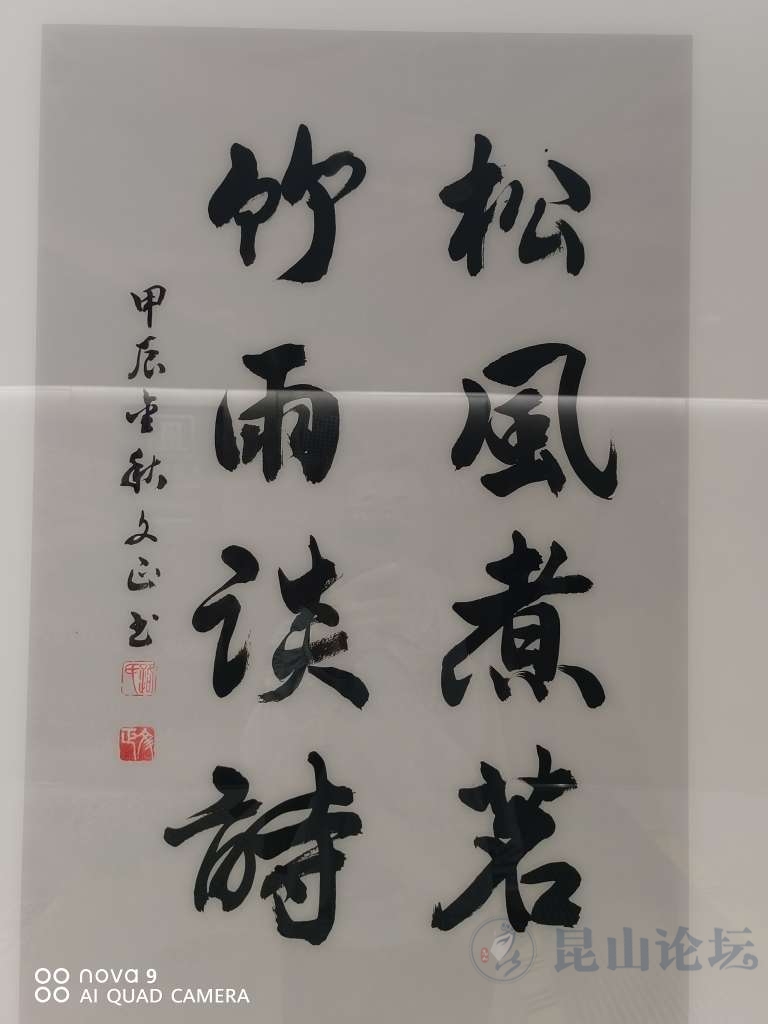 松風煮茗
竹雨談詩
甲辰金秋文正书
nova 9
AI QUAD CAMERA
昆山论坛